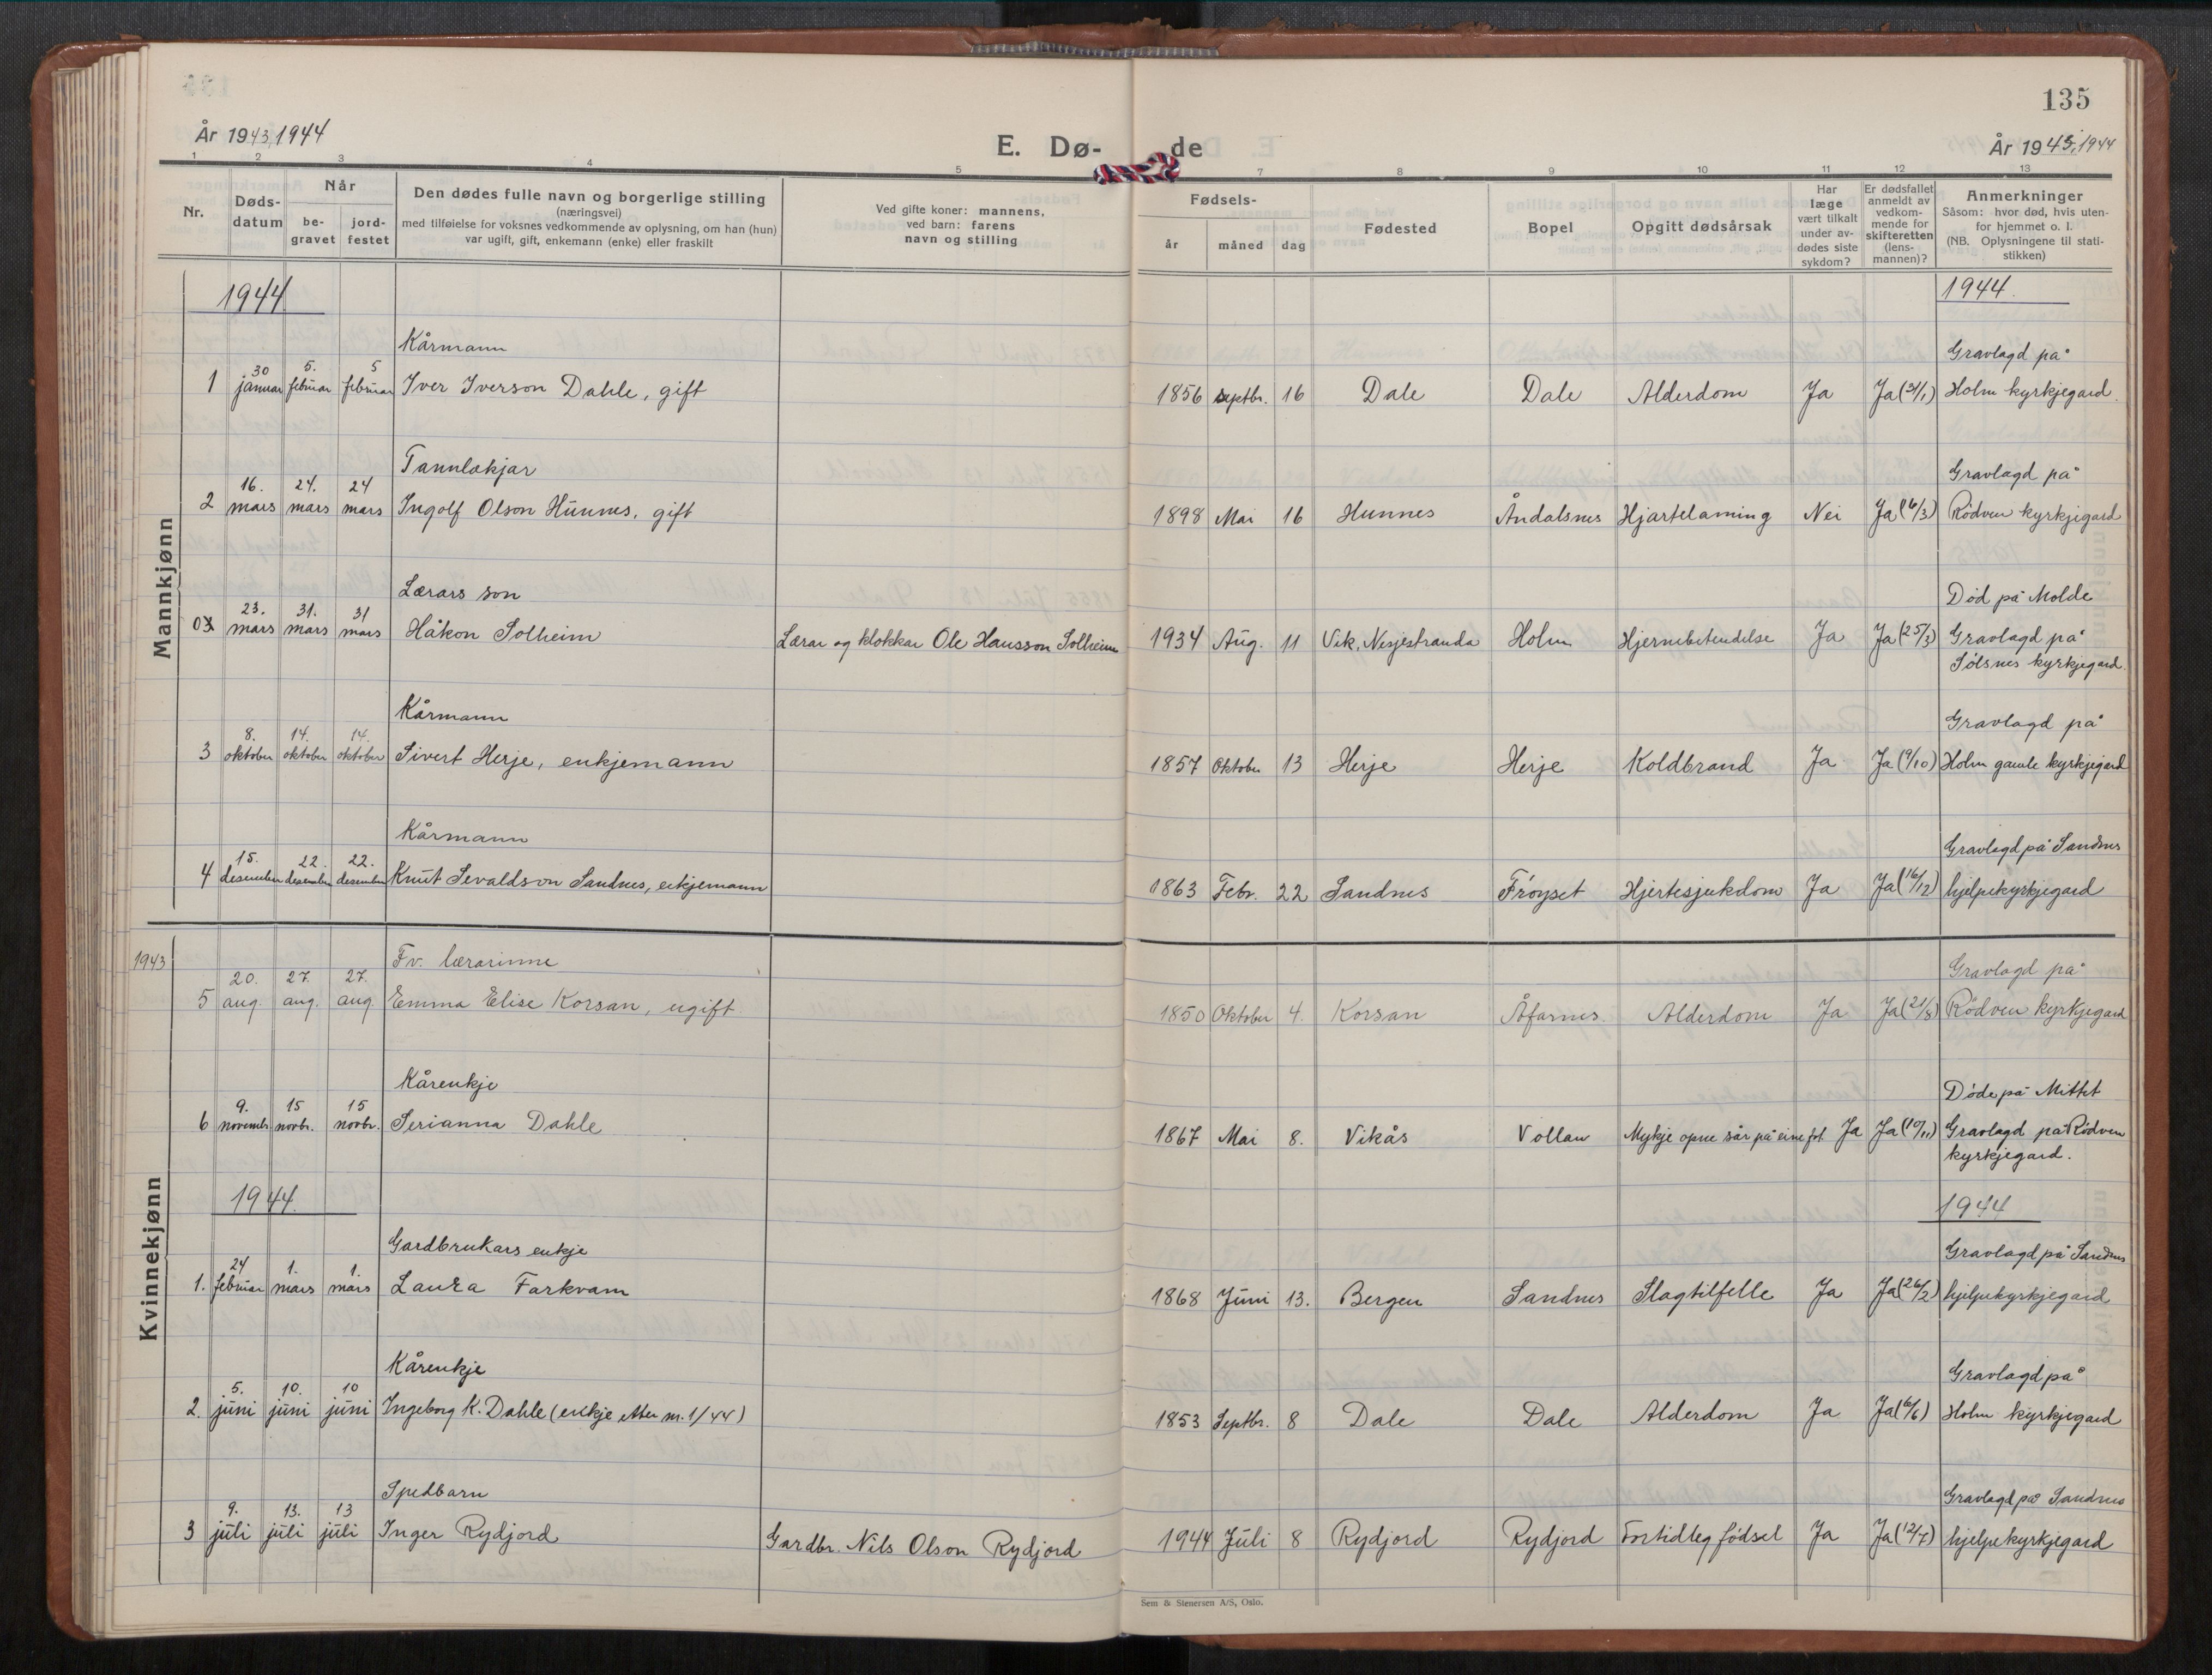 135
År 1943, 1944
E. Dø-
de
År 1943, 1944
1 2 3 4 5 7 8 9 10 11 12 13
Nr.
Døds-
datum
Når
be-
gravet
jord-
festet
Den dødes fulle navn og borgerlige stilling
(næringsvei)
med tilføielse for voksnes vedkommende av oplysning, om han (hun)
var ugift, gift, enkemann (enke) eller fraskilt
Ved gifte koner: mannens,
ved barn: farens
navn og stilling
Fødsels-
år måned dag
Fødested
Bopel
Opgitt dødsårsak
Har
læge
vært tilkalt
under av-
dødes siste
sykdom?
Er dødsfallet
anmeldt av
vedkom-
mende for
skifteretten
(lens-
mannen)?
Anmerkninger
Såsom: hvor død, hvis uten-
for hjemmet o. l.
(NB. Oplysningene til stati-
stikken)
Mannkjønn
1944 1944.
Kårmann Gravlagd på
30 5. 5
1 januar februar februar Iver Iverson Dahle, gift 1856 septbr. 16 Dale Dale Alderdom Ja Ja (31/1) Holm kyrkjegard.
Tannlækjar Gravlagd på
16. 24. 24
2 mars mars mars Ingolf Olson Hunnes, gift 1898 Mai 16 Hunnes Åndalsnes Hjartelaming Nei Ja (16/3) Rödven kyrkjegard
Lærars son Død på Molde
23. 31. 31
03 mars mars mars Håkon Solheim Lærar og klokkar Ole Hansson Solheim 1934 Aug. 11 Vik, Nesjestranda Holm Hjernebetendelse Ja Ja (25/3) Gravlagd på
Sölsnes kyrkjegard.
Kårmann Gravlagd på
8. 14. 14.
3 oktober oktober oktober Sivert Herje, enkjemann 1857 Oktober 13 Herje Herje Koldbrand Ja Ja (9/10) Holm gamle kyrkjegard
Kårmann Gravlagd på Sandnes
15. 22. 22.
4 desember desember desember Knut Sevaldson Sandnes, enkjemann 1863 Febr. 22 Sandnes Fröyset Hjertesjukdom Ja Ja (16/12) hjelpekyrkjegard
Kvinnekjønn
1943 Fv. lærarinne Gravlagd på
20. 27. 27.
5 aug. aug. aug. Emma Elise Korsan, ugift. 1850 Oktober 4. Korsan Åfarnes. Alderdom Ja Ja (21/8) Rödven kyrkjegard
Kårenkje Døde på Mittet
9. 15 15
6 novembr. novbr. novbr. Serianna Dahle 1867 Mai 8. Vikås Vollan Mykje opne sår på eine fot Ja Ja (10/11) Gravlagd på Rödven
kyrkjegard.
1944. 1944
Gardbrukars enkje Gravlagd på Sandnes
24 1. 1.
1. februar mars mars Laura Farkvam 1868 Juni 13. Bergen Sandnes Slagtilfelle Ja Ja (26/2) hjelpekyrkjegard
Kårenkje Gravlagd på
5. 10. 10
2. juni juni juni Ingeborg K. Dahle (enkje etter nr. 1/44) 1853 Septbr. 8 Dale Dale Alderdom Ja Ja (6/6) Holm kyrkjegard
Spedbarn Gravlagd på Sandnes
9. 13. 13
3 juli juli juli Inger Rydjord Gardbr. Nils Olson Rydjord 1944 Juli 8 Rydjord Rydjord Fortidleg fødsel Ja Ja (12/7) hjelpekyrkjegard
Sem & Stenersen A/S, Oslo.